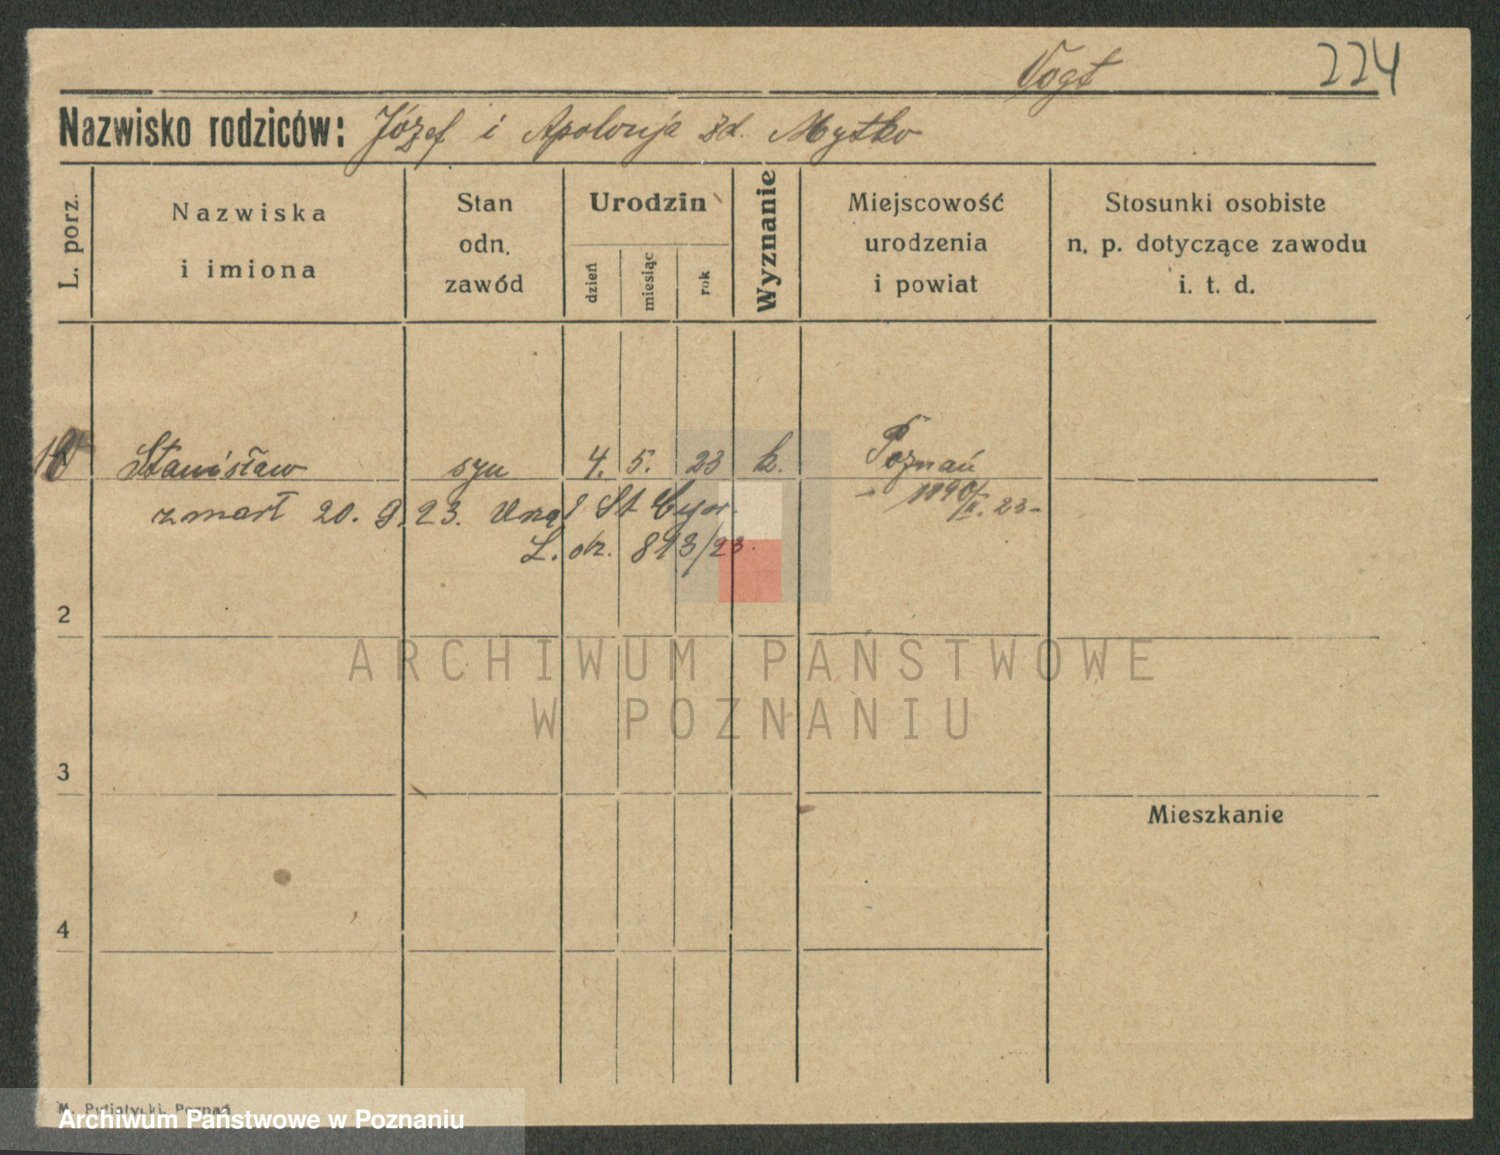 Vogt 224
Nazwisko rodziców: Józef i Apolonja zd. Mytko
L. porz.
Nazwiska
i imiona
Stan
odn.
zawód
Urodzin
dzień
miesiąc
rok
Wyznanie
Miejscowość
urodzenia
i powiat
Stosunki osobiste
n. p. dotyczące zawodu
i. t. d.
Stanisław syn 4. 5. 23 k. Poznań
zmarł 20. 9. 23. Urząd St. Cyw.
L. dz. 813/23.
2
3
Mieszkanie
4
ARCHIWUM PAŃSTWOWE
W POZNANIU
M. Putiatycki, Poznań
Archiwum Państwowe w Poznaniu